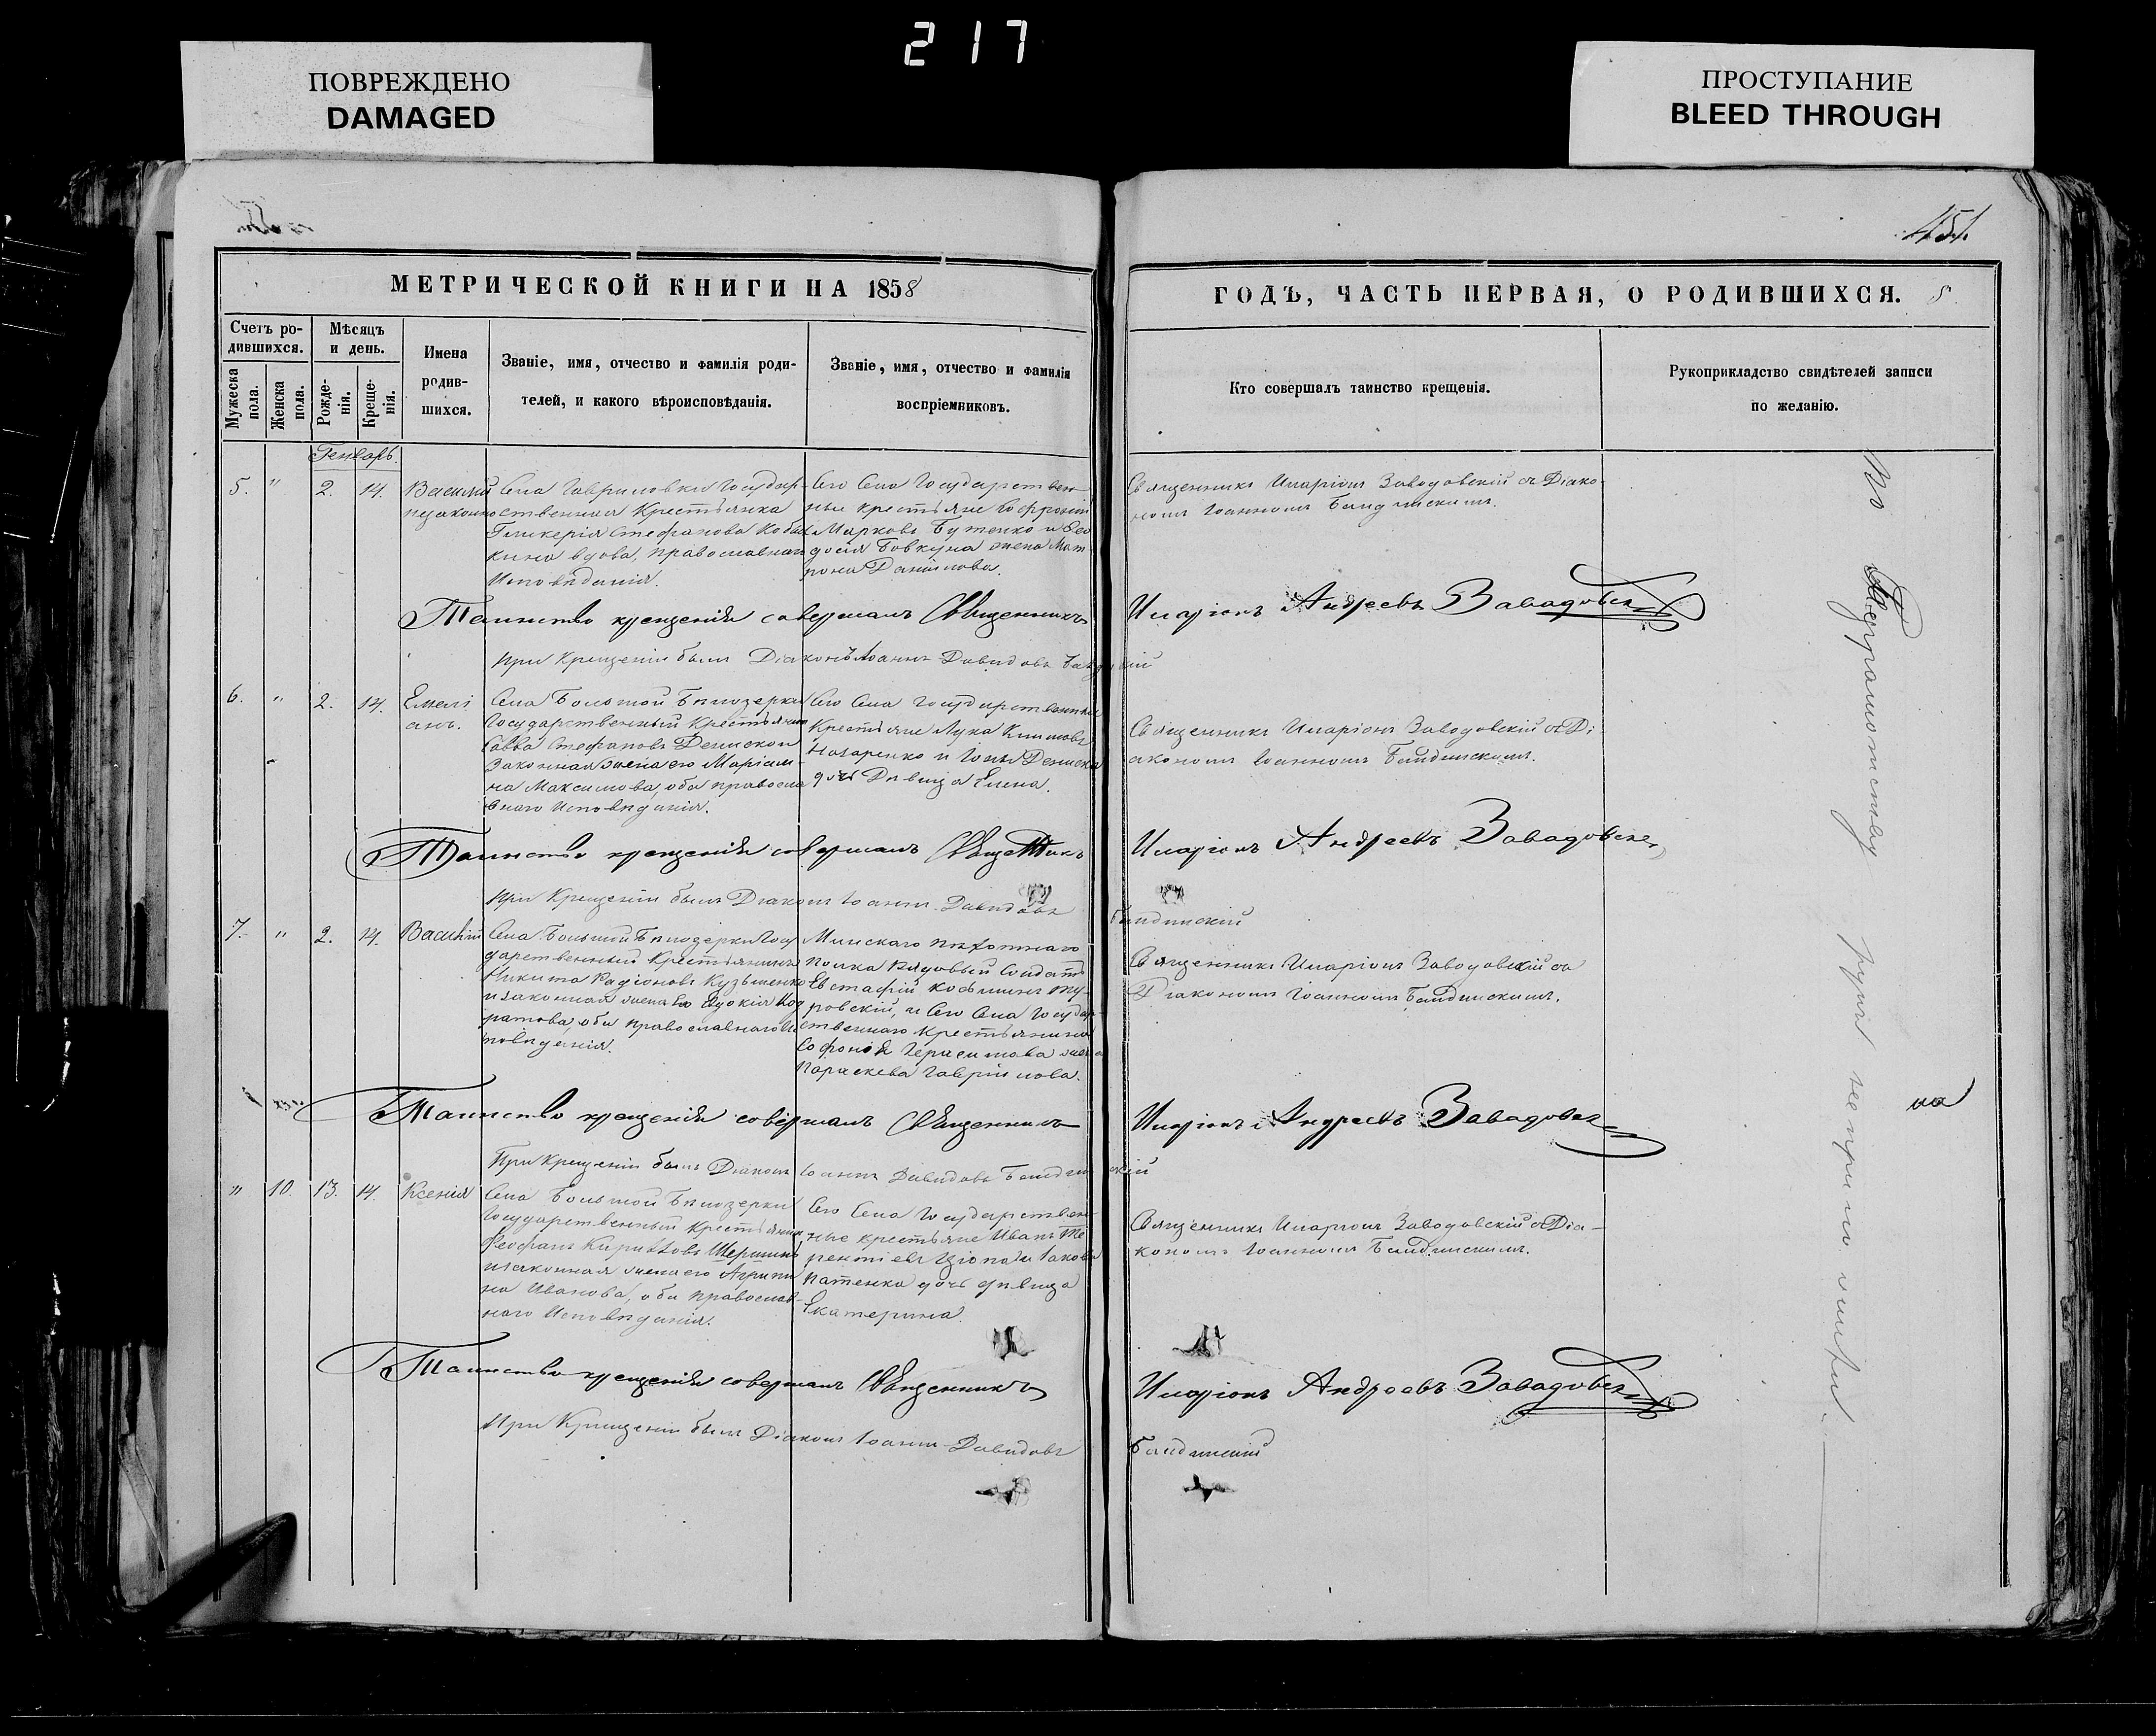 217
ПОВРЕЖДЕНО
DAMAGED
ПРОСТУПАНИЕ
BLEED THROUGH
451.
МЕТРИЧЕСКОЙ КНИГИ НА 1858
ГОДЪ, ЧАСТЬ ПЕРВАЯ, О РОДИВШИХСЯ.
Счетъ ро-
дившихся.
Мужеска
пола.
Женска
пола.
Мѣсяцъ
и день.
Рожде-
нія.
Креще-
нія.
Имена
родив-
шихся.
Званіе, имя, отчество и фамилія роди-
телей, и какого вѣроисповѣданія.
Званіе, имя, отчество и фамилія
воспріемниковъ.
Кто совершалъ таинство крещенія.
Рукоприкладство свидѣтелей записи
по желанію.
Генварь.
5. " 2. 14. Василій
незаконно
Села Гавриловки Государ-
ственная Крестьянка
Гликерія Стефанова
вдова, православнаго
Исповѣданія.
Сего Села Государствен
ные крестьяне Софроній
Марковъ Бутенко и Ѳео
досія Бовкуна жена Мат
рона Даніилова.
Священникъ Иларіонъ Заводовскій съ Діако-
номъ Іоанномъ
Таинство крещенія совершалъ Священникъ
Иларіонъ Андреевъ Завадовскій
При Крещеніи былъ Діаконъ Іоаннъ Давидовъ
6. " 2. 14. Емелі
анъ.
Села Большой Бѣлозерки
Государственный Крестьянинъ
Савва Стефановъ Дениско и
Законная жена его Маріам
на Максимова, оба правосла
внаго Исповѣданія.
Сего Села Государственные
Крестьяне Лука Климовъ
Назаренко и Дениска
дочь Дѣвица Елена.
Священникъ Иларіонъ Заводовскій съ Ді-
акономъ Іоанномъ
Таинство крещенія совершалъ Священникъ
Иларіонъ Андреевъ Завадовскій
При Крещеніи былъ Діаконъ Іоаннъ Давидовъ
7. " 2. 14. Василій
Села Большой Бѣлозерки Госу
дарственный Крестьянинъ
Никита Радіоновъ Кузьменко
и законная жена Его Евдокія Код
ратова, оба православнаго Ис
повѣданія.
Минскаго пѣхотнаго
полка Рядовый Солдатъ
Евстафій Косминъ Ту-
ровскій, и Сего Села Государ-
ственнаго Крестьянина
Софонія Герасимова жена
Параскева Гавріилова.
Священникъ Иларіонъ Заводовскій съ
Діакономъ Іоанномъ
Таинство крещенія совершалъ Священникъ
Иларіонъ Андреевъ Завадовскій
При Крещеніи былъ Діаконъ Іоаннъ Давидовъ
" 10. 13. 14. Ксенія
Села Большой Бѣлозерки
Государственный Крестьянинъ
Феофанъ Кирилловъ
и законная жена его Агрипи
на Иванова, оба православ-
наго Исповѣданія.
Сего Села Государствен-
ные крестьяне Иванъ Те
рентіевъ и Іакова
дочь дѣвица
Екатерина.
Священникъ Иларіонъ Заводовскій съ Діа-
кономъ Іоанномъ
Таинство крещенія совершалъ Священникъ
Иларіонъ Андреевъ Завадовскій
При Крещеніи былъ Діаконъ Іоаннъ Давидовъ
По безграмотству руки не приложили.